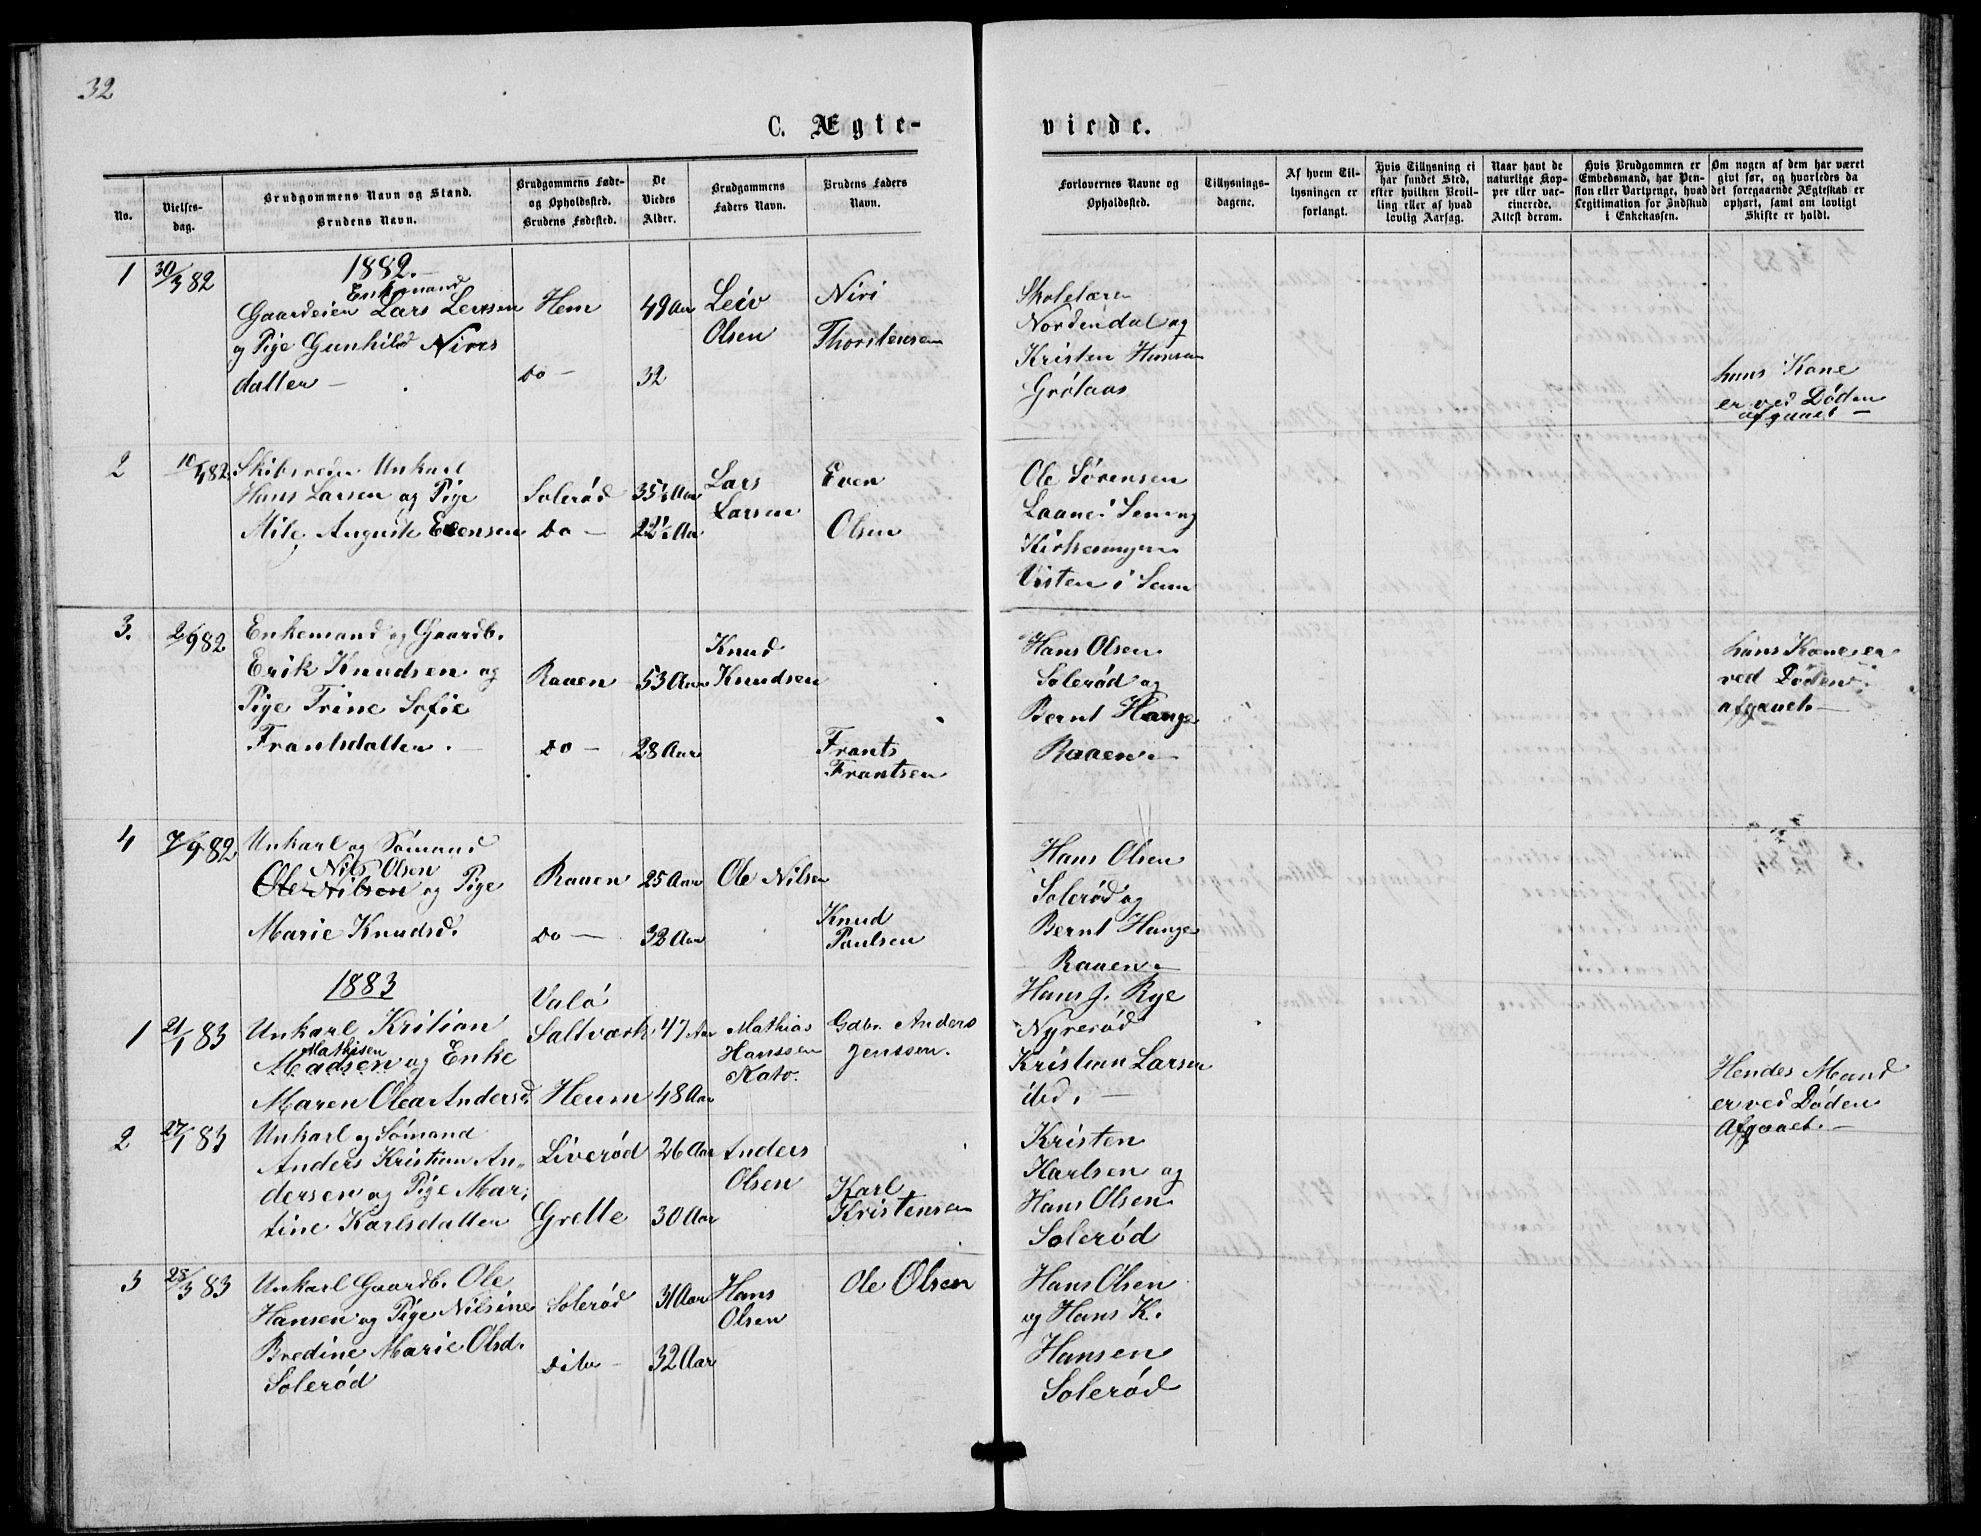 32
C. Ægte-
viede.
No.
Vielses-
dag.
Brudgommens Navn og Stand.
Brudens Navn.
Brudgommens Føde-
og Opholdssted.
Brudens Fødested.
De
Viedes
Alder.
Brudgommens
Faders Navn.
Brudens Faders
Navn.
Forlovernes Navne og
Opholdssted.
Tillysnings-
dagene.
Af hvem Til-
lysningen er
forlangt.
Hvis Tillysning ei
har fundet Sted,
efter hvilken Bevil-
ling eller af hvad
lovlig Aarsag.
Naar havt de
naturlige Kop-
per eller vac-
cinerede.
Attest derom.
Hvis Brudgommen er
Embedsmand, har Pen-
sion eller Vartpenge, hvad
Legitimation for Indskud
i Enkekassen.
Om nogen af dem har været
givt før, og hvorledes da
det foregaaende Ægteskab er
ophørt, samt om lovligt
Skifte er holdt.
1882.
1 30/3 82
Enkemand
Gaardeien Lars Levsen
og Pige Gunhild Nires
datter
Hem
Do
49 Aar
32
Leiv
Olsen
Niri
Thorstensen
Skolelærer
Nordendal og
Kristen Hansen
Grølaas
hans Kone
er ved Døden
afgaaet
2 10/4 82
Unkarl
Hans Larsen og Pige
Auguste Evensen
Solerød
Do
35½ Aar
22½ Aar
Lars
Larsen
Even
Olsen
Ole Sørensen
i Sem og
Kirkesanger
Visten i Sem
3. 2/9 82
Enkemand og Gaardb.
Erik Knudsen og
Pige Trine Sofie
Frantsdatter.
Raaen
Do
53 Aar
28 Aar
Knud
Knudsen
Frants
Frantsen
Hans Olsen
Solerød og
Bernt Hauge
Raaen
hans Kone er
ved Døden
afgaaet
4 7/9 82
Unkarl og Sømand
Nils Olsen
Ole Nilsen og Pige
Marie Knudsd.
Raaen
Do
25 Aar
32 Aar
Ole Nilsen
Knud
Paulsen
Hans Olsen
Solerød og
Bernt Hauge
Raaen
1883
1 21/1 83
Unkarl Kritian
Mathisen
Madsen og Enke
Maren Olea Andersd.
Valø
Saltværk
Heum
47 Aar
48 Aar
Mathias
Hanssen
Gdbr. Anders
Jenssen.
Hans J. Rye
Nyrerød
Kristian Larsen
ibd.
Hendes Mand
er ved Døden
Afgaaet.
2 27/1 83
Unkarl og Sømand
Anders Kristian An-
dersen og Pige Mar-
tine Karlsdatter
Liverød
Grette
26 Aar
30 Aar
Anders
Olsen
Karl
Kristensen
Kristen
Karlsen og
Hans Olsen
Solerød
3 28/3 83
Unkarl Gaardb. Ole
Hansen og Pige Nilsine
Bredine Marie Olsd.
Solerød
Solerød
Dito
31 Aar
32 Aar
Hans
Olsen
Ole Olsen
Hans Olsen
og Hans K.
Hansen
Solerød